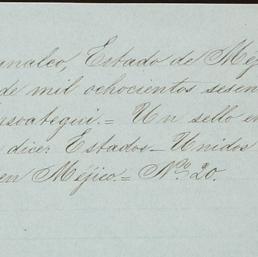 nalco, Estado de Méj
de mil ochocientos sesen
asoategui.= Un sello en
dice: Estados-Unidos
en Méjico.= Nº 20.